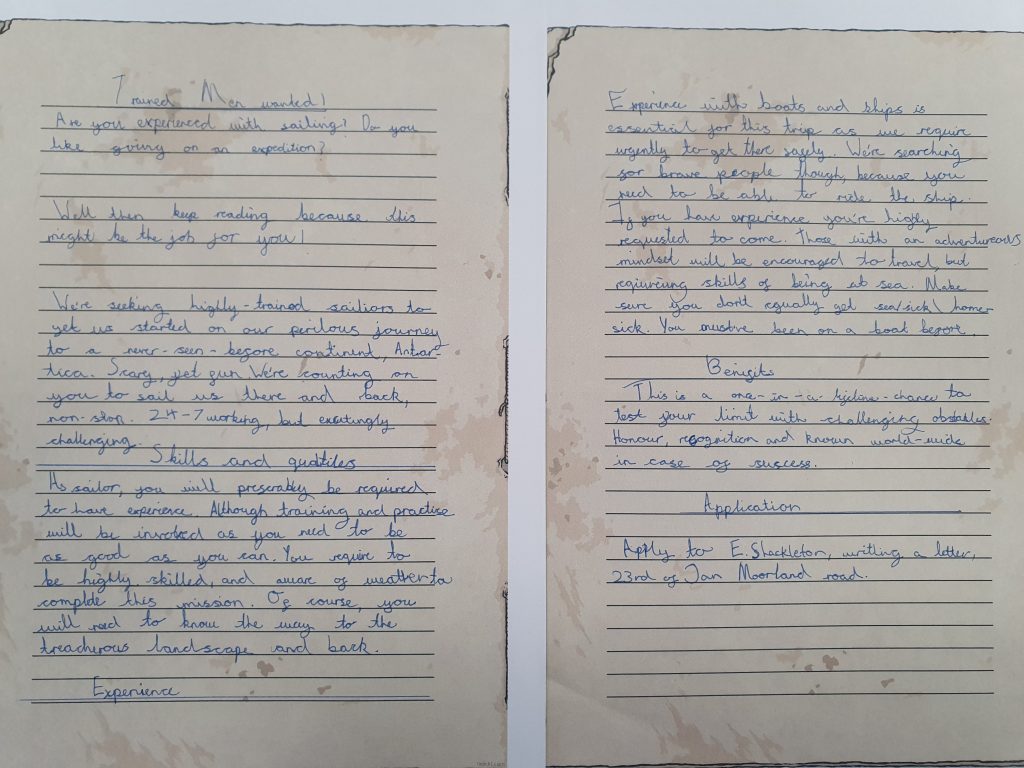 Trained Men wanted!
Are you experienced with sailing? Do you
like going on an expedition?
Well then keep reading because this
might be the job for you!
We're seeking highly-trained sailiors to
get us started on our perilous journey
to a never-seen-before continent, Antar-
tica. Scary, yet fun We're counting on
you to sail us there and back,
non-stop. 24-7 working, but excitingly
challenging.
Skills and qualities
As sailor, you will preferably be required
to have experience. Although training and practise
will be involved as you need to be
as good as you can. You require to
be highly skilled, and aware of weather to
complete this mission. Of course, you
will need to know the way to the
treacherous landscape and back.
Experience
Experience with boats and ships is
essential for this trip as we require
urgently to get there safely. We're searching
for brave people though, because you
need to be able to ride the ship.
If you have experience you're highly
requested to come. Those with an adventureous
mindset will be encouraged to travel, but
requiring skills of being at sea. Make
sure you don't equally get sea/sick\ home-
sick. You must've been on a boat before.
Benefits
This is a one-in-a-lifetime-chance to
test your limit with challenging obstables.
Honour, recognition and known world-wide
in case of success.
Application
Apply to E. Shackleton, writling a letter,
23rd of Jan Moorland road.